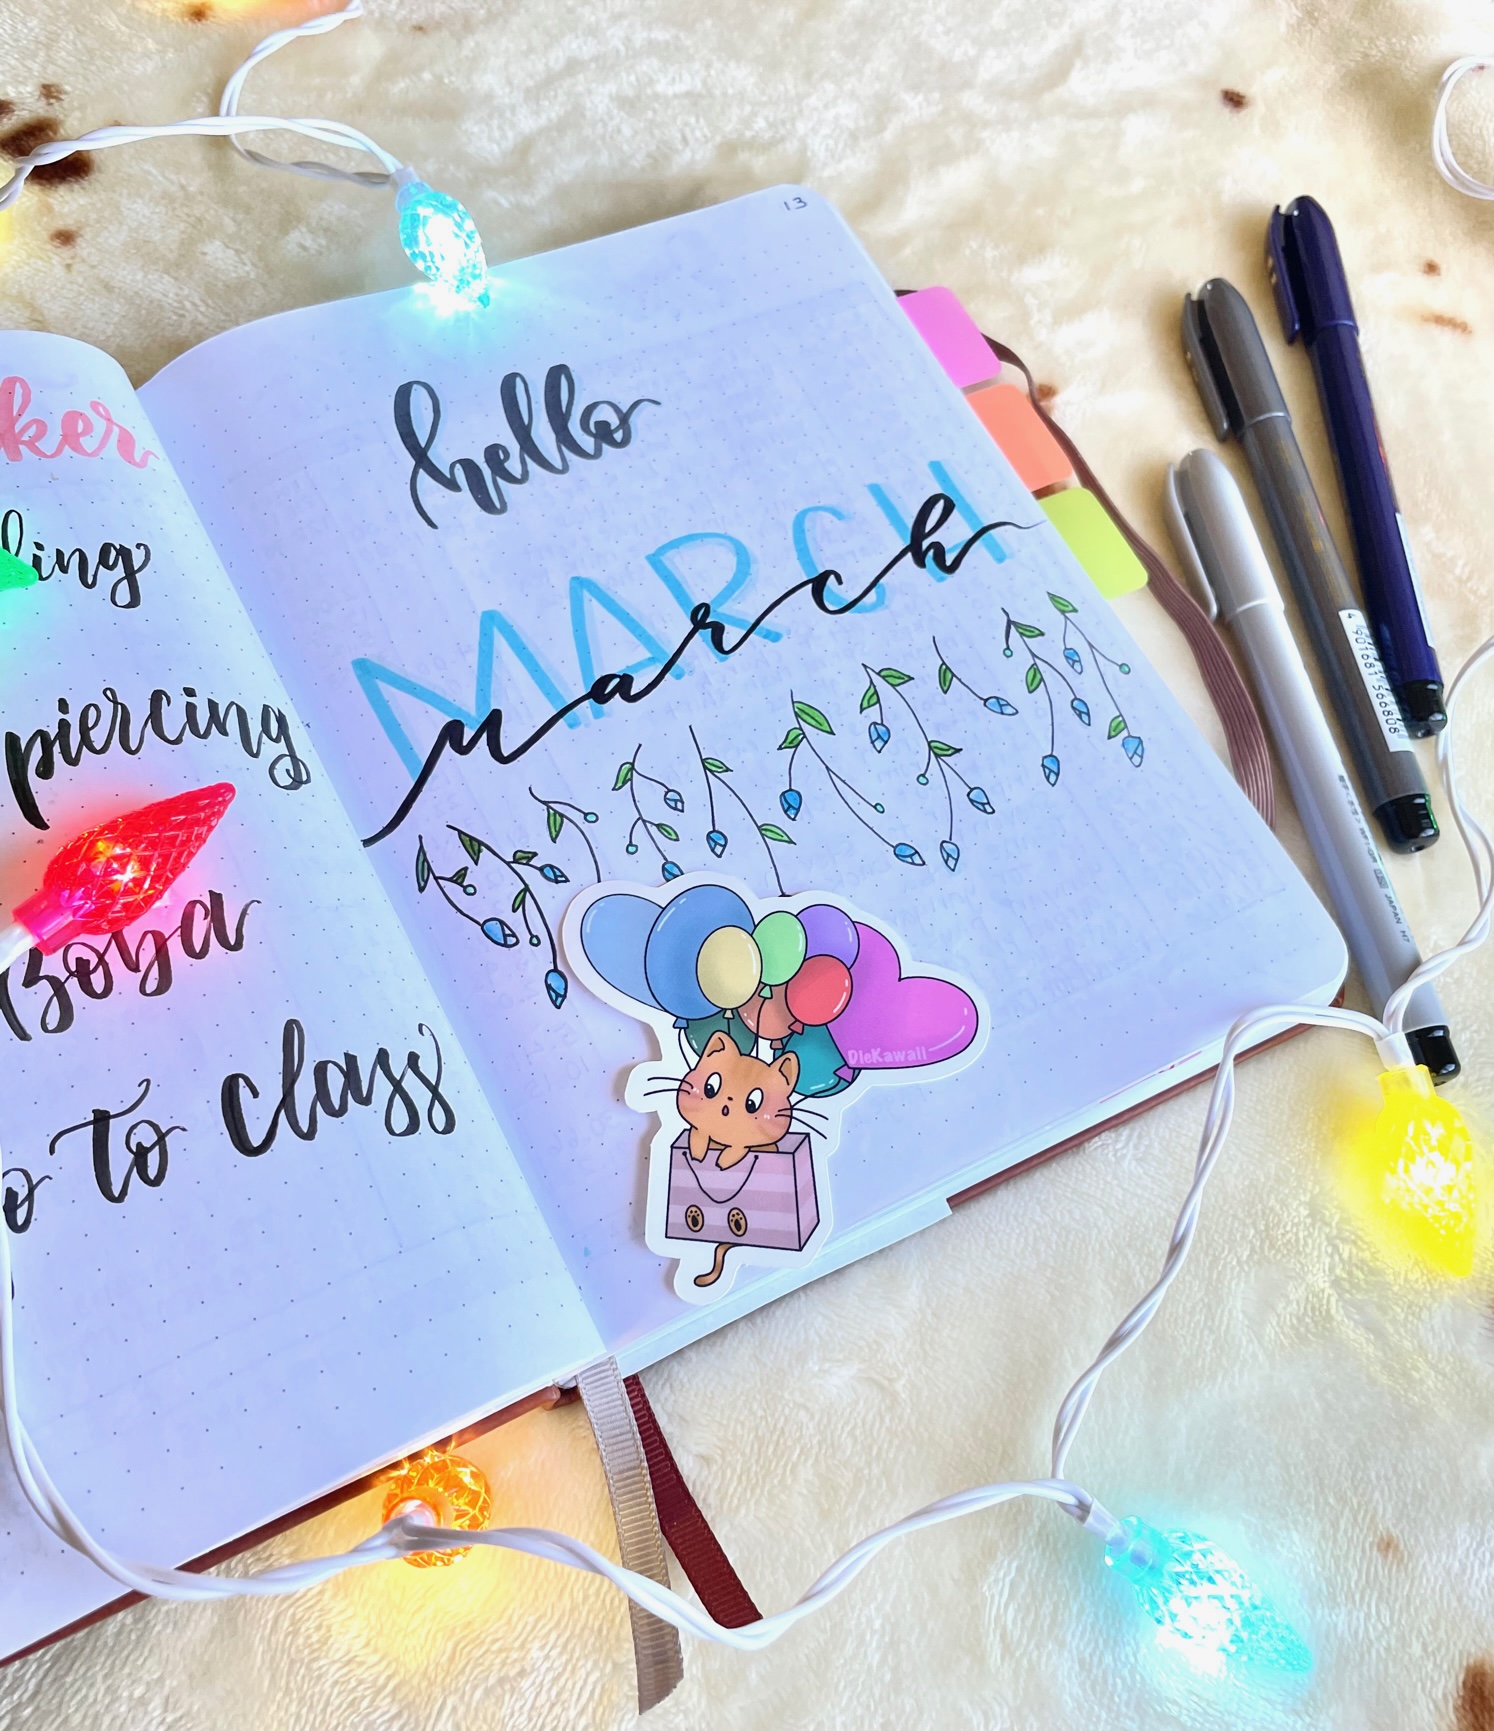 ker
ling
piercing
Boba
o to class
13
hello
MARCH
march
DieKawaii
4 901681 566808